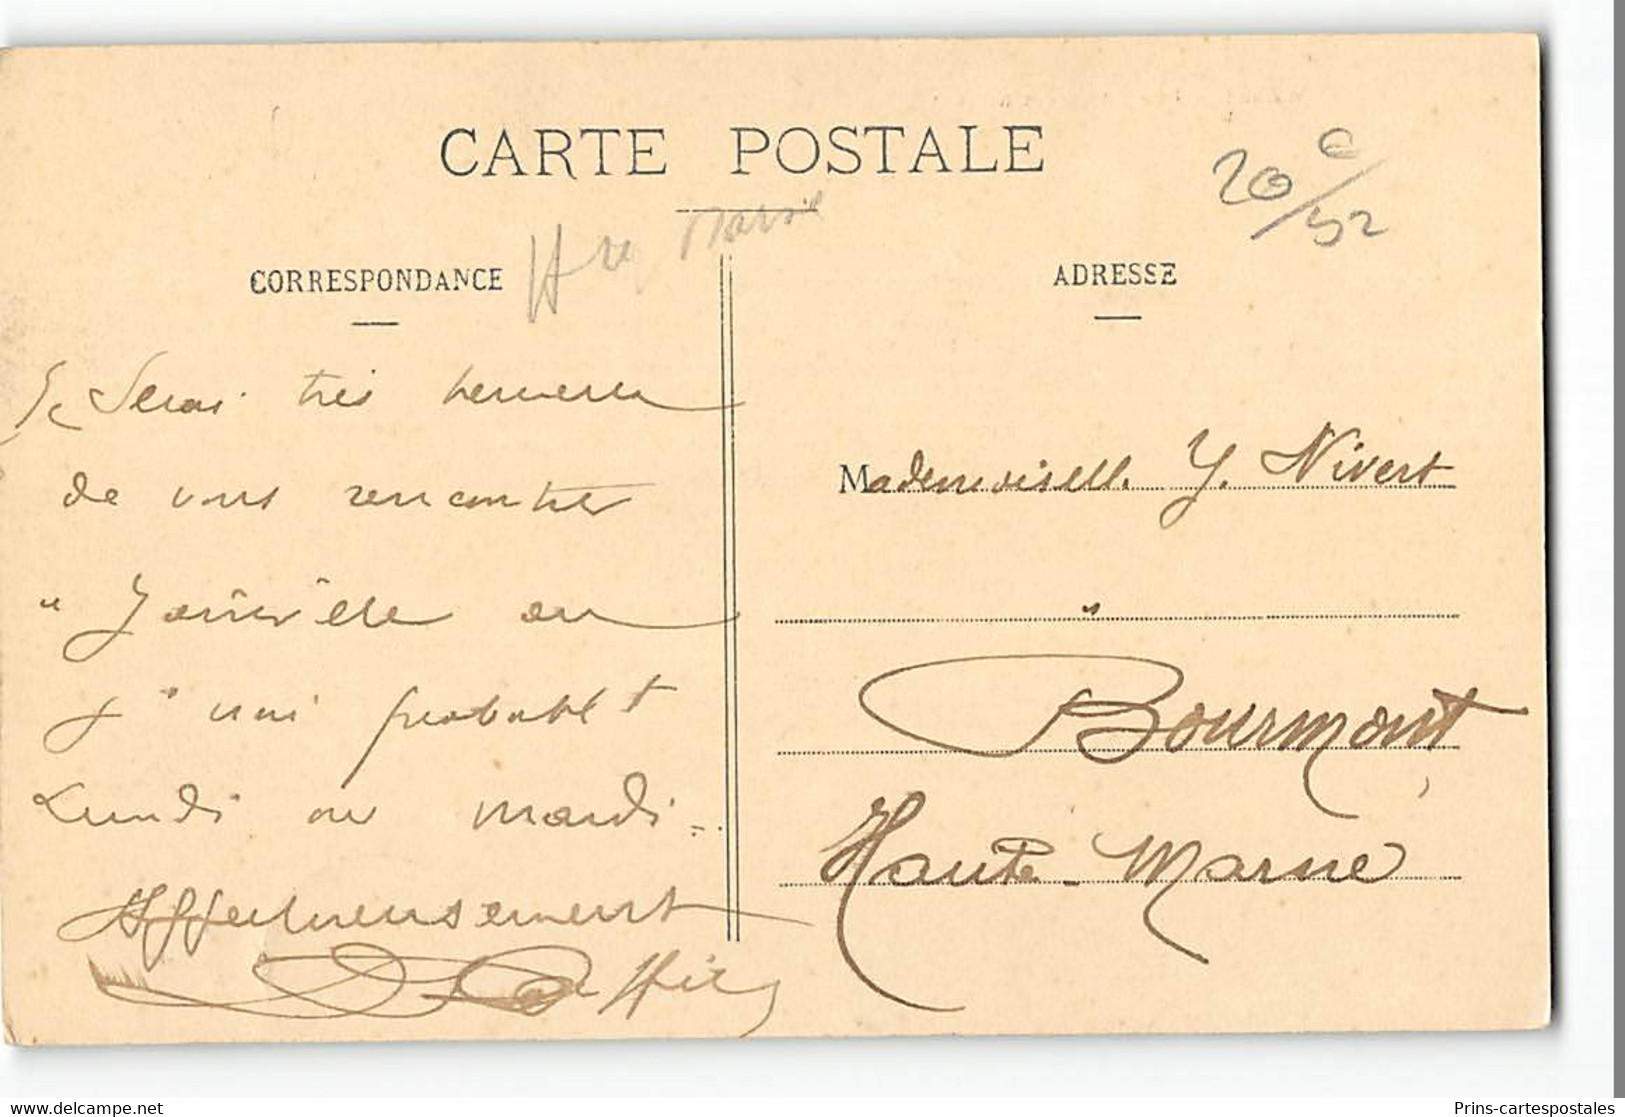 CARTE POSTALE
20 e/52
Hte Marne
CORRESPONDANCE
Je serai très heureux
de vous rencontrer
à Joinville où
j'irai probablt
Lundi ou mardi
Affectueusement
ADRESSE
Mademoiselle Y. Nivert
à
Bourmont
Haute-Marne
Prins-cartespostales